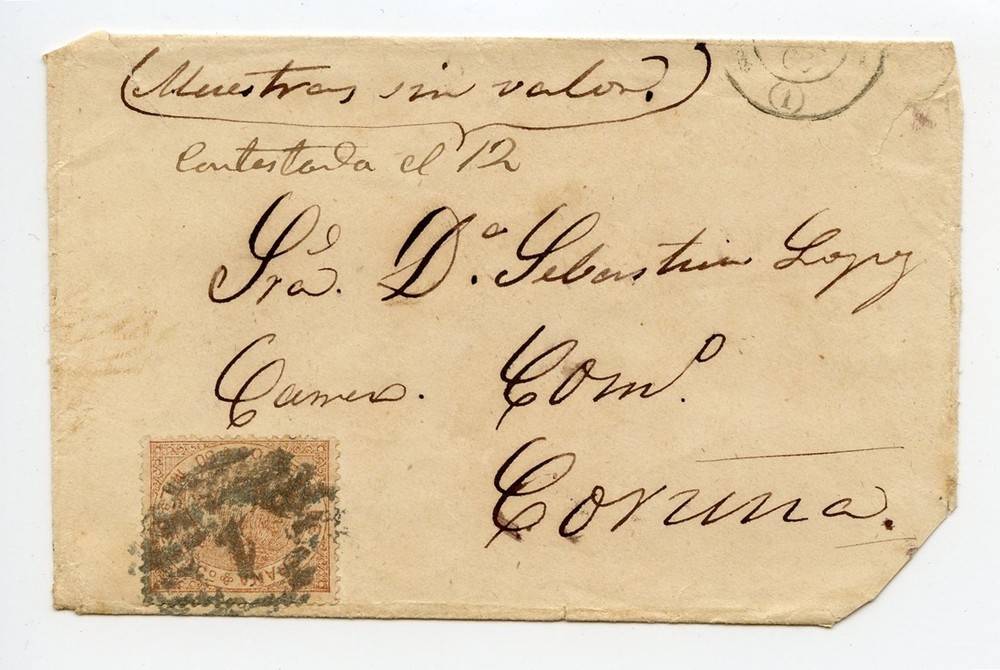 (Muestras sin valor.)
Contestada el 12
Sra. Dª. Sebastian Lopez
Com.º
Coruna.
(1)
1